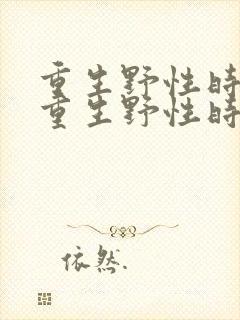 重生野性时
重生野性时
依然.